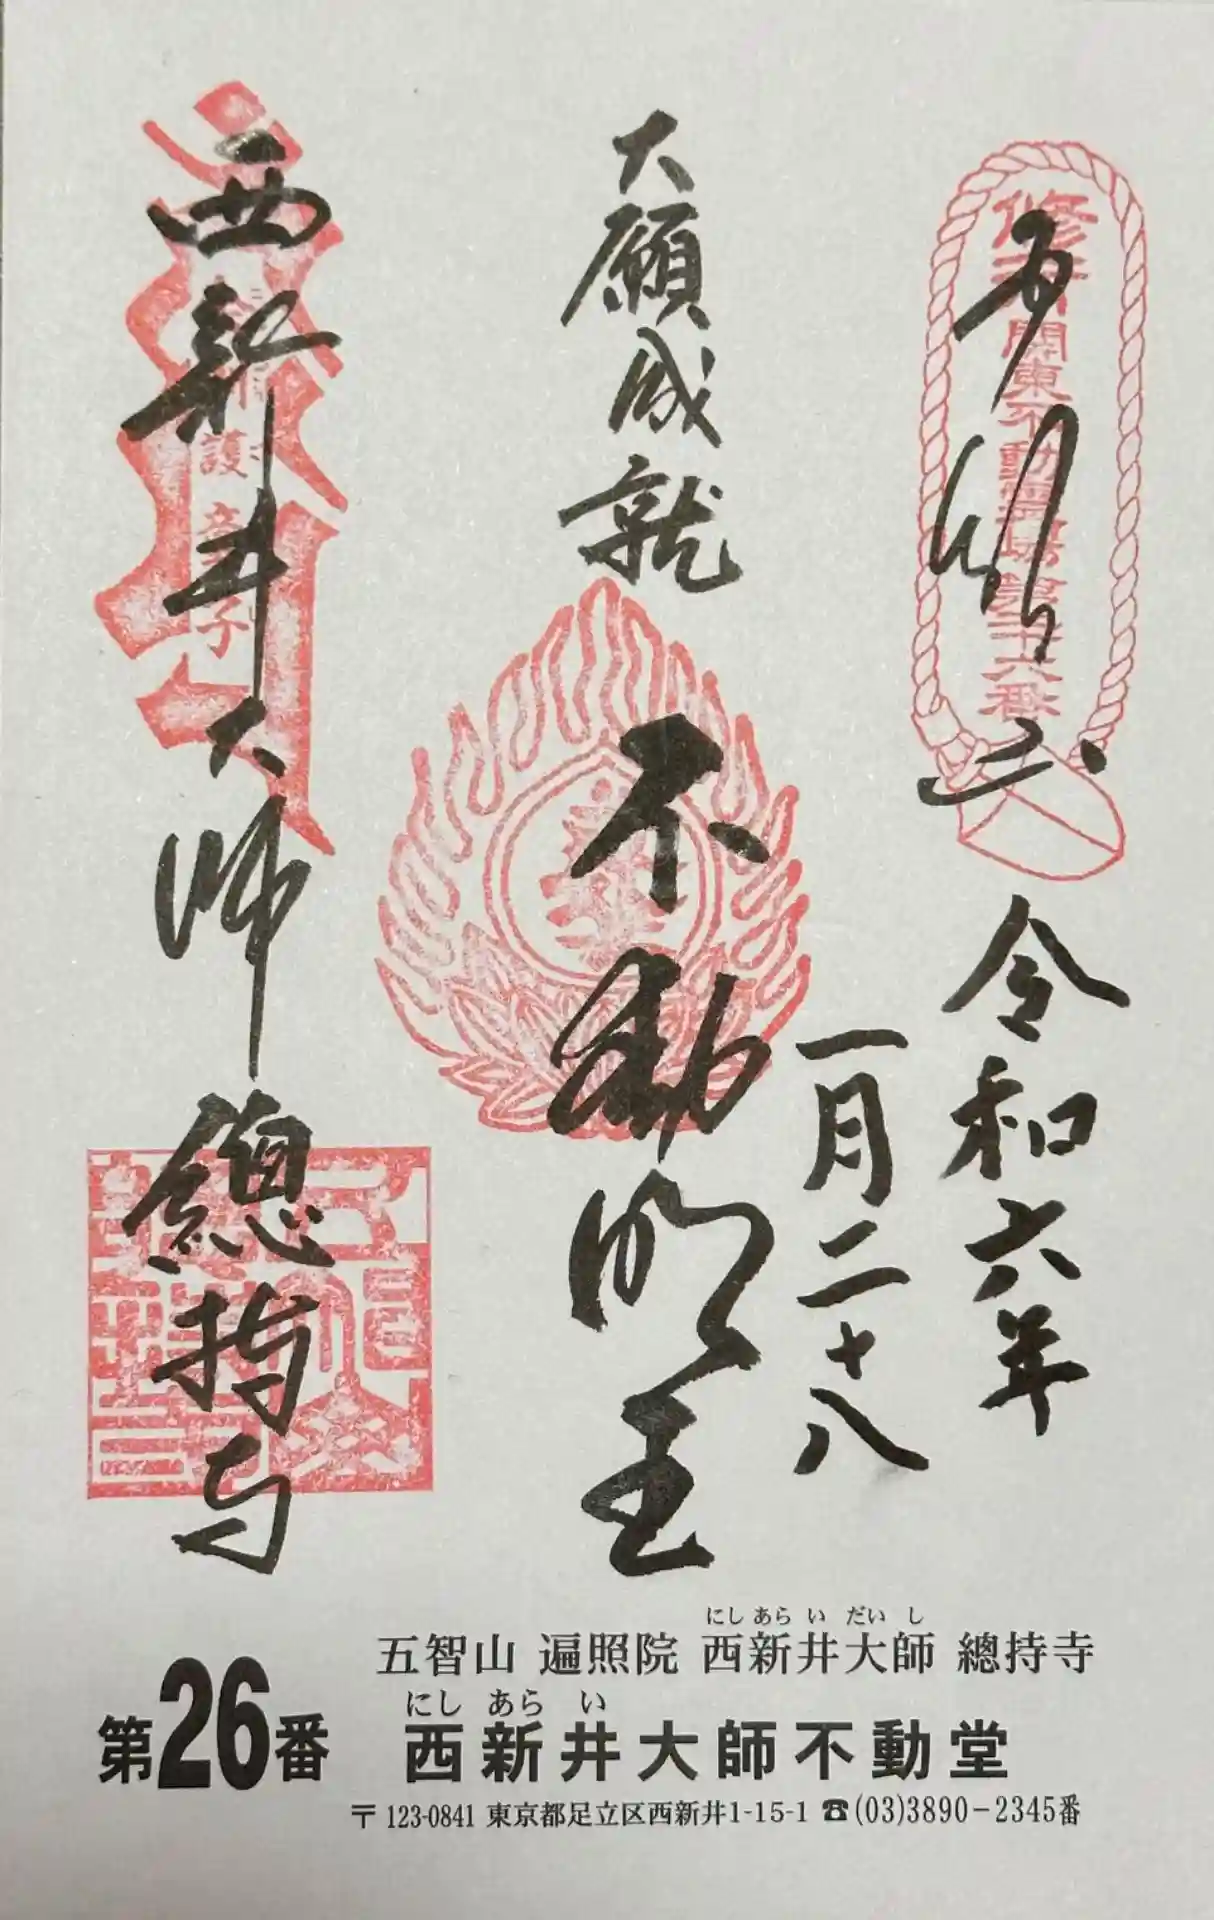 奉拝
令和六年
一月二十八
大願成就
不動明王
西新井大師
總持寺
関東不動霊場第二十六番
五智山 遍照院 西新井大師 總持寺
にし あら い だい し
第26番
西新井大師不動堂
にし あら い
〒123-0841 東京都足立区西新井1-15-1 ☎(03)3890-2345番